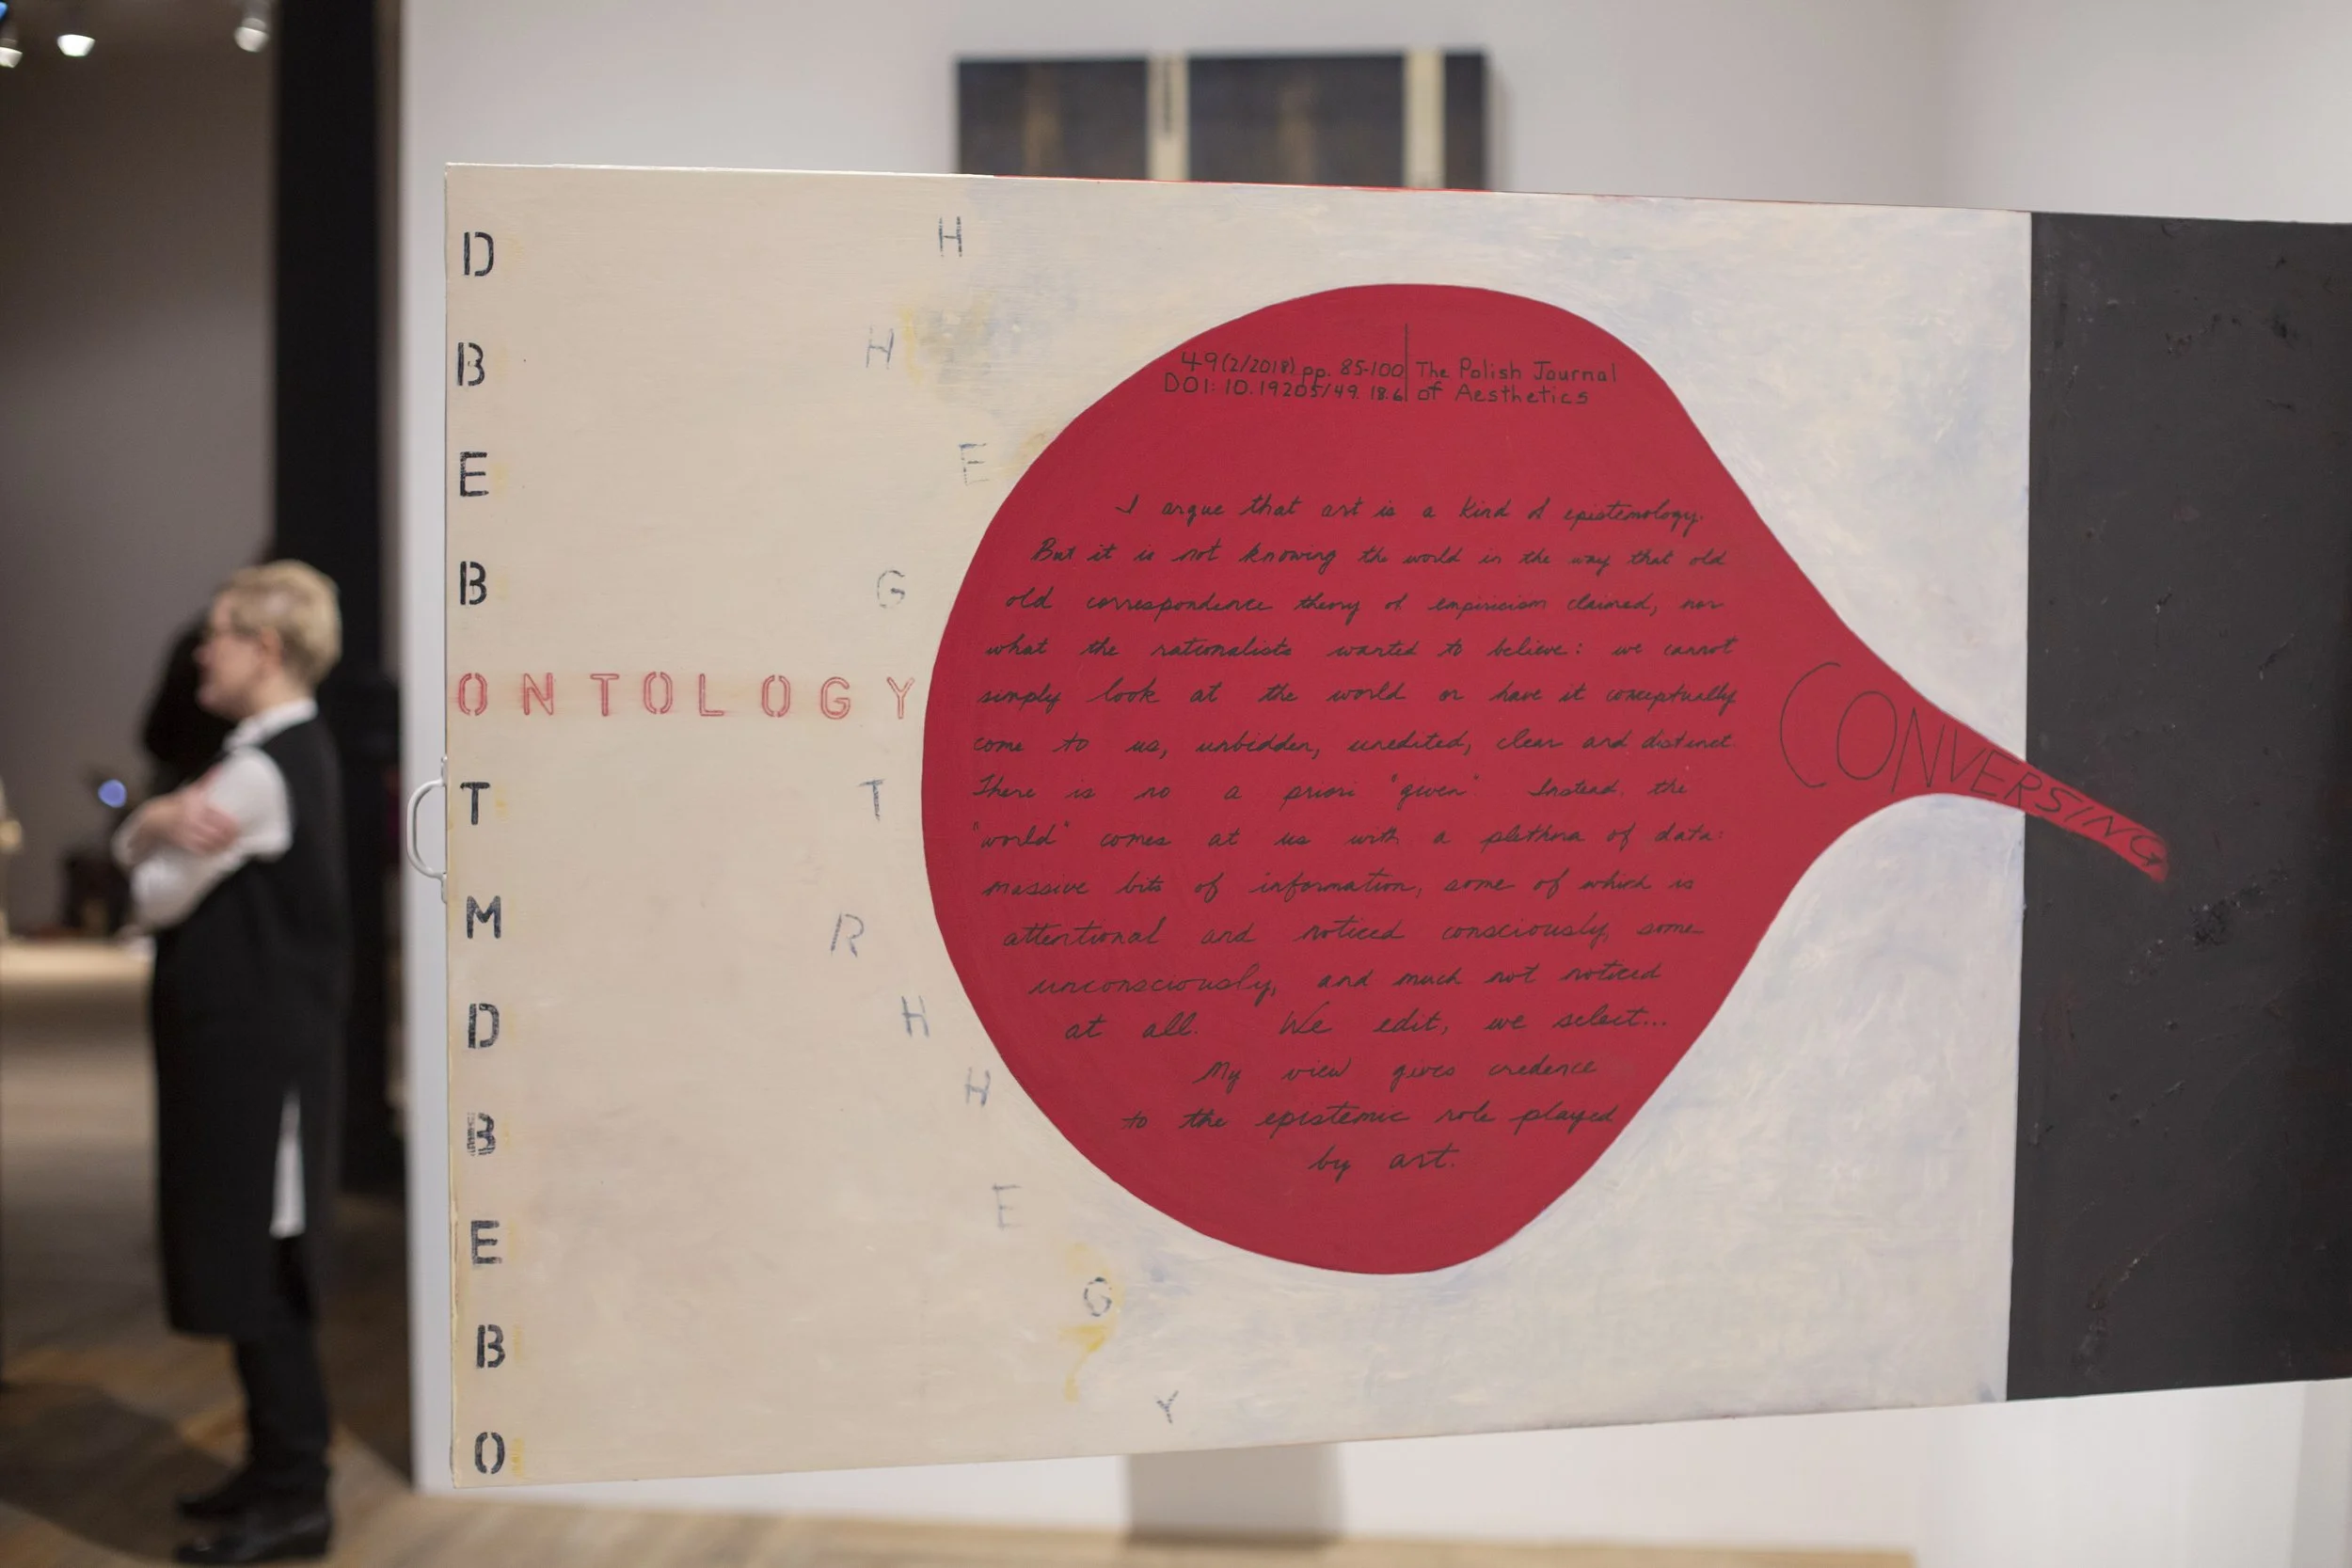 D
B
E
B
ONTOLOGY
T
M
D
B
E
B
O
H
H
E
G
T
R
H
H
E
G
Y
49(2/2018) pp. 85-100 The Polish Journal
DOI: 10.19205/49.18.6 of Aesthetics
I argue that art is a kind of epistemology.
But it is not knowing the world in the way that old
old correspondence theory of empiricism claimed, nor
what the rationalists wanted to believe: we cannot
simply look at the world or have it conceptually
come to us, unbidden, unedited, clear and distinct.
There is no a priori "given". Instead the
"world" comes at us with a plethora of data:
massive bits of information, some of which is
attentional and noticed consciously, some
unconsciously, and much not noticed
at all. We edit, we select...
My view gives credence
to the epistemic role played
by art.
CONVERSING